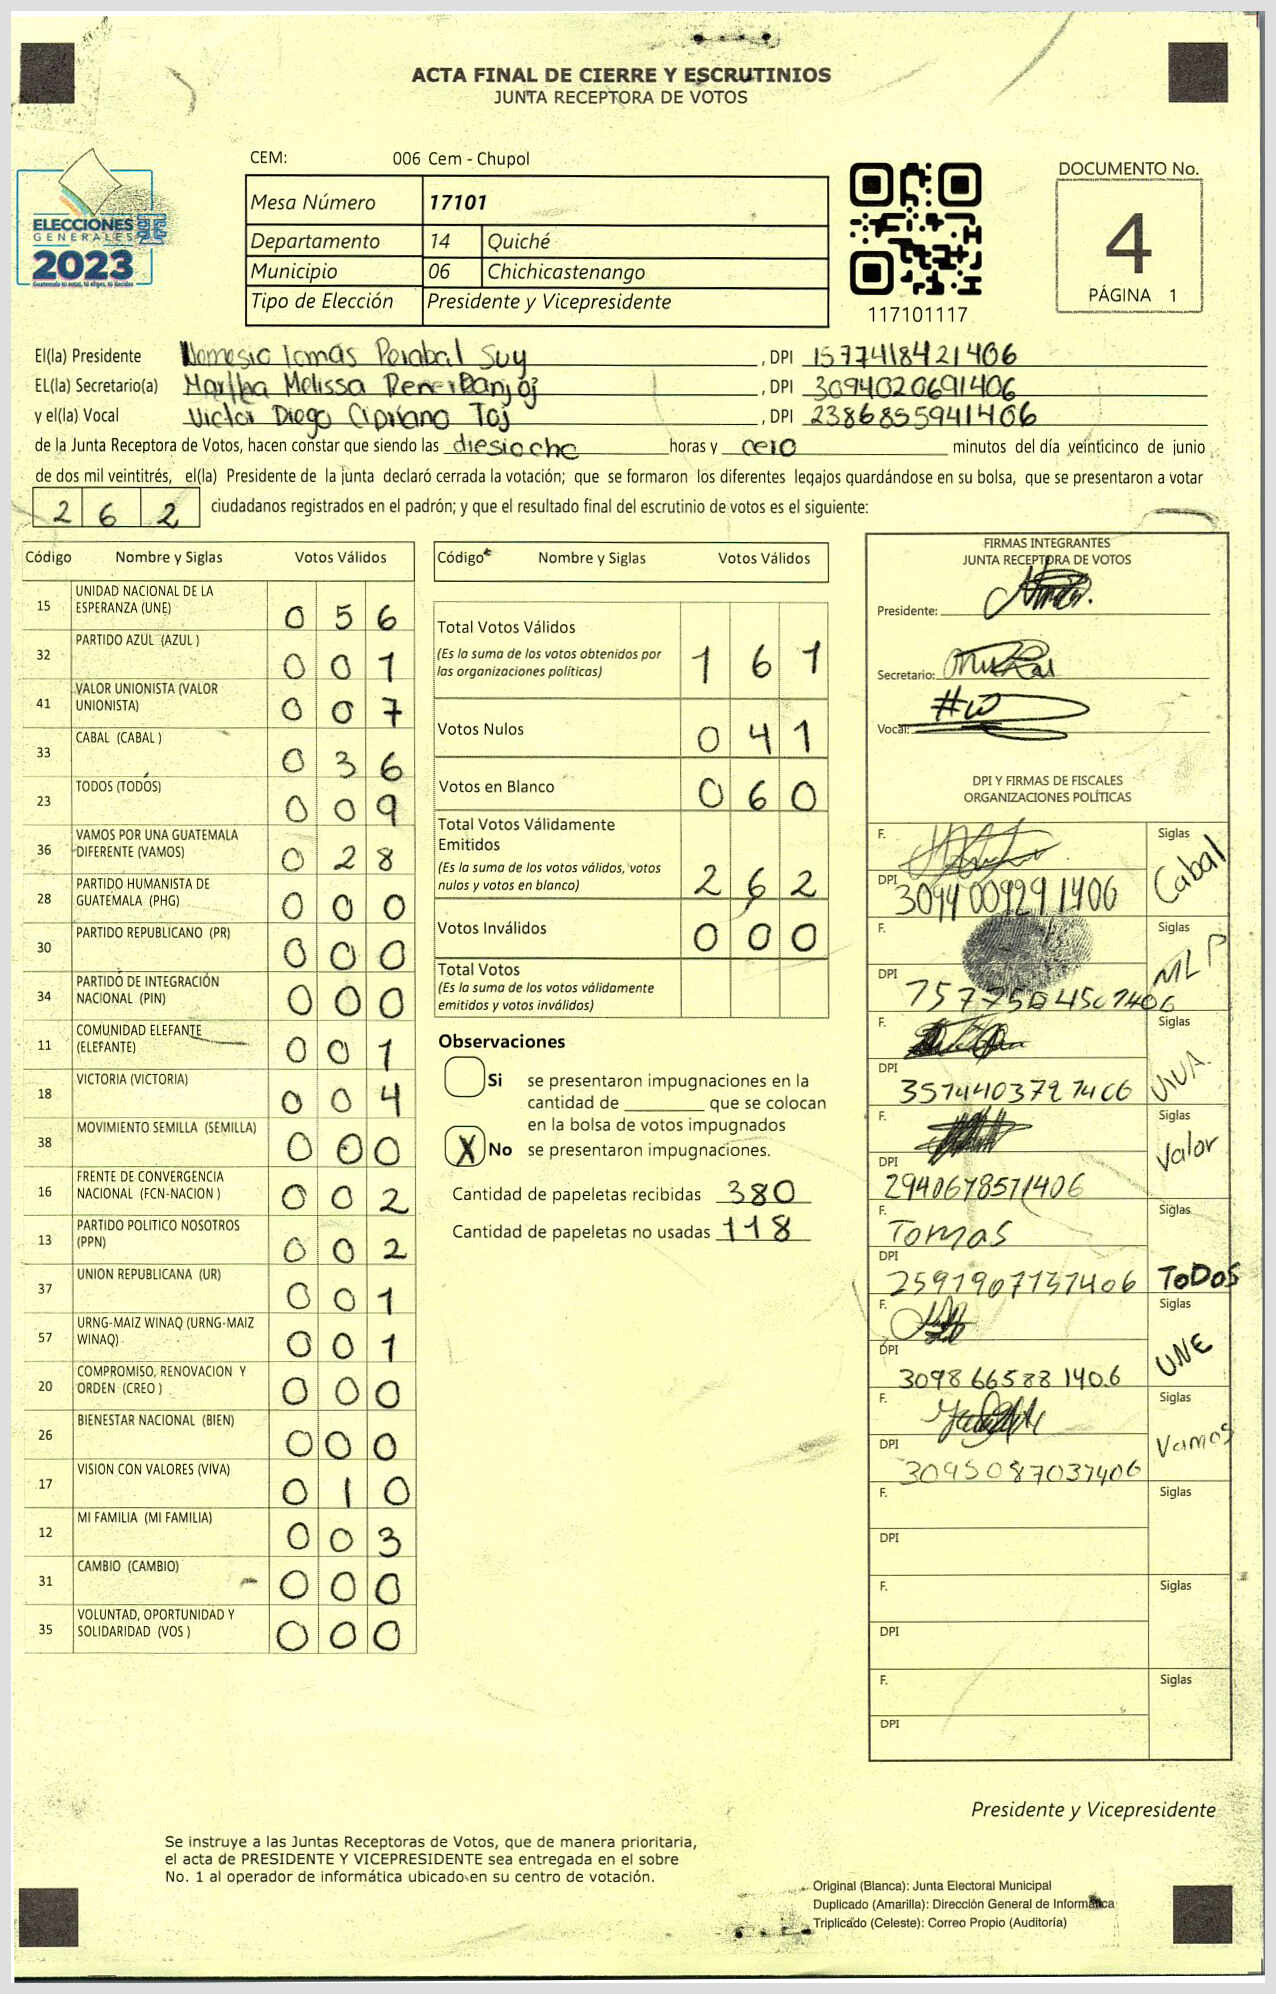 ACTA FINAL DE CIERRE Y ESCRUTINIOS
JUNTA RECEPTORA DE VOTOS
CEM: 006 Cem - Chupol
ELECCIONES
GENERALES
2023
Guatemala tú estás, tú eliges, tú decides
Mesa Número 17101
Departamento 14 Quiché
Municipio 06 Chichicastenango
Tipo de Elección Presidente y Vicepresidente
117101117
DOCUMENTO No.
4
PÁGINA 1
El(la) Presidente Nemesio Tomás Perabal Suy, DPI 1577418421406
EL(la) Secretario(a) Martha Melissa, DPI 3094020691406
y el(la) Vocal Victor Diego Cipriano Toj, DPI 2386855941406
de la Junta Receptora de Votos, hacen constar que siendo las diesioche horas y cero minutos del día veinticinco de junio
de dos mil veintitrés, el(la) Presidente de la junta declaró cerrada la votación; que se formaron los diferentes legajos quardándose en su bolsa, que se presentaron a votar
262 ciudadanos registrados en el padrón; y que el resultado final del escrutinio de votos es el siguiente:
Código Nombre y Siglas Votos Válidos
15 UNIDAD NACIONAL DE LA ESPERANZA (UNE) 056
32 PARTIDO AZUL (AZUL ) 001
41 VALOR UNIONISTA (VALOR UNIONISTA) 007
33 CABAL (CABAL ) 036
23 TODOS (TODOS) 009
36 VAMOS POR UNA GUATEMALA DIFERENTE (VAMOS) 028
28 PARTIDO HUMANISTA DE GUATEMALA (PHG) 000
30 PARTIDO REPUBLICANO (PR) 000
34 PARTIDO DE INTEGRACIÓN NACIONAL (PIN) 000
11 COMUNIDAD ELEFANTE (ELEFANTE) 001
18 VICTORIA (VICTORIA) 004
38 MOVIMIENTO SEMILLA (SEMILLA) 000
16 FRENTE DE CONVERGENCIA NACIONAL (FCN-NACION ) 002
13 PARTIDO POLITICO NOSOTROS (PPN) 002
37 UNION REPUBLICANA (UR) 001
57 URNG-MAIZ WINAQ (URNG-MAIZ WINAQ) 001
20 COMPROMISO, RENOVACION Y ORDEN (CREO ) 000
26 BIENESTAR NACIONAL (BIEN) 000
17 VISION CON VALORES (VIVA) 010
12 MI FAMILIA (MI FAMILIA) 003
31 CAMBIO (CAMBIO) 000
35 VOLUNTAD, OPORTUNIDAD Y SOLIDARIDAD (VOS ) 000
Código Nombre y Siglas Votos Válidos
Total Votos Válidos 161
(Es la suma de los votos obtenidos por
las organizaciones políticas)
Votos Nulos 041
Votos en Blanco 060
Total Votos Válidamente
Emitidos 262
(Es la suma de los votos válidos, votos
nulos y votos en blanco)
Votos Inválidos 000
Total Votos
(Es la suma de los votos válidamente
emitidos y votos inválidos)
Observaciones
Si se presentaron impugnaciones en la
cantidad de ________ que se colocan
en la bolsa de votos impugnados
X No se presentaron impugnaciones.
Cantidad de papeletas recibidas 380
Cantidad de papeletas no usadas 118
FIRMAS INTEGRANTES
JUNTA RECEPTORA DE VOTOS
Presidente:
Secretario:
Vocal:
DPI Y FIRMAS DE FISCALES
ORGANIZACIONES POLÍTICAS
F. Siglas Cabal
DPI 3094009291406
F. Siglas MLP
DPI
F. Siglas VIVA
DPI 3574403727406
F. Siglas Valor
DPI 2940678571406
F. Tomas Siglas TODOS
DPI 2591907137406
F. Siglas UNE
DPI 3098665881406
F. Siglas Vamos
DPI 3095087037406
F. Siglas
DPI
F. Siglas
DPI
F. Siglas
DPI
Presidente y Vicepresidente
Se instruye a las Juntas Receptoras de Votos, que de manera prioritaria,
el acta de PRESIDENTE Y VICEPRESIDENTE sea entregada en el sobre
No. 1 al operador de informática ubicado en su centro de votación.
Original (Blanca): Junta Electoral Municipal
Duplicado (Amarilla): Dirección General de Informática
Triplicado (Celeste): Correo Propio (Auditoría)